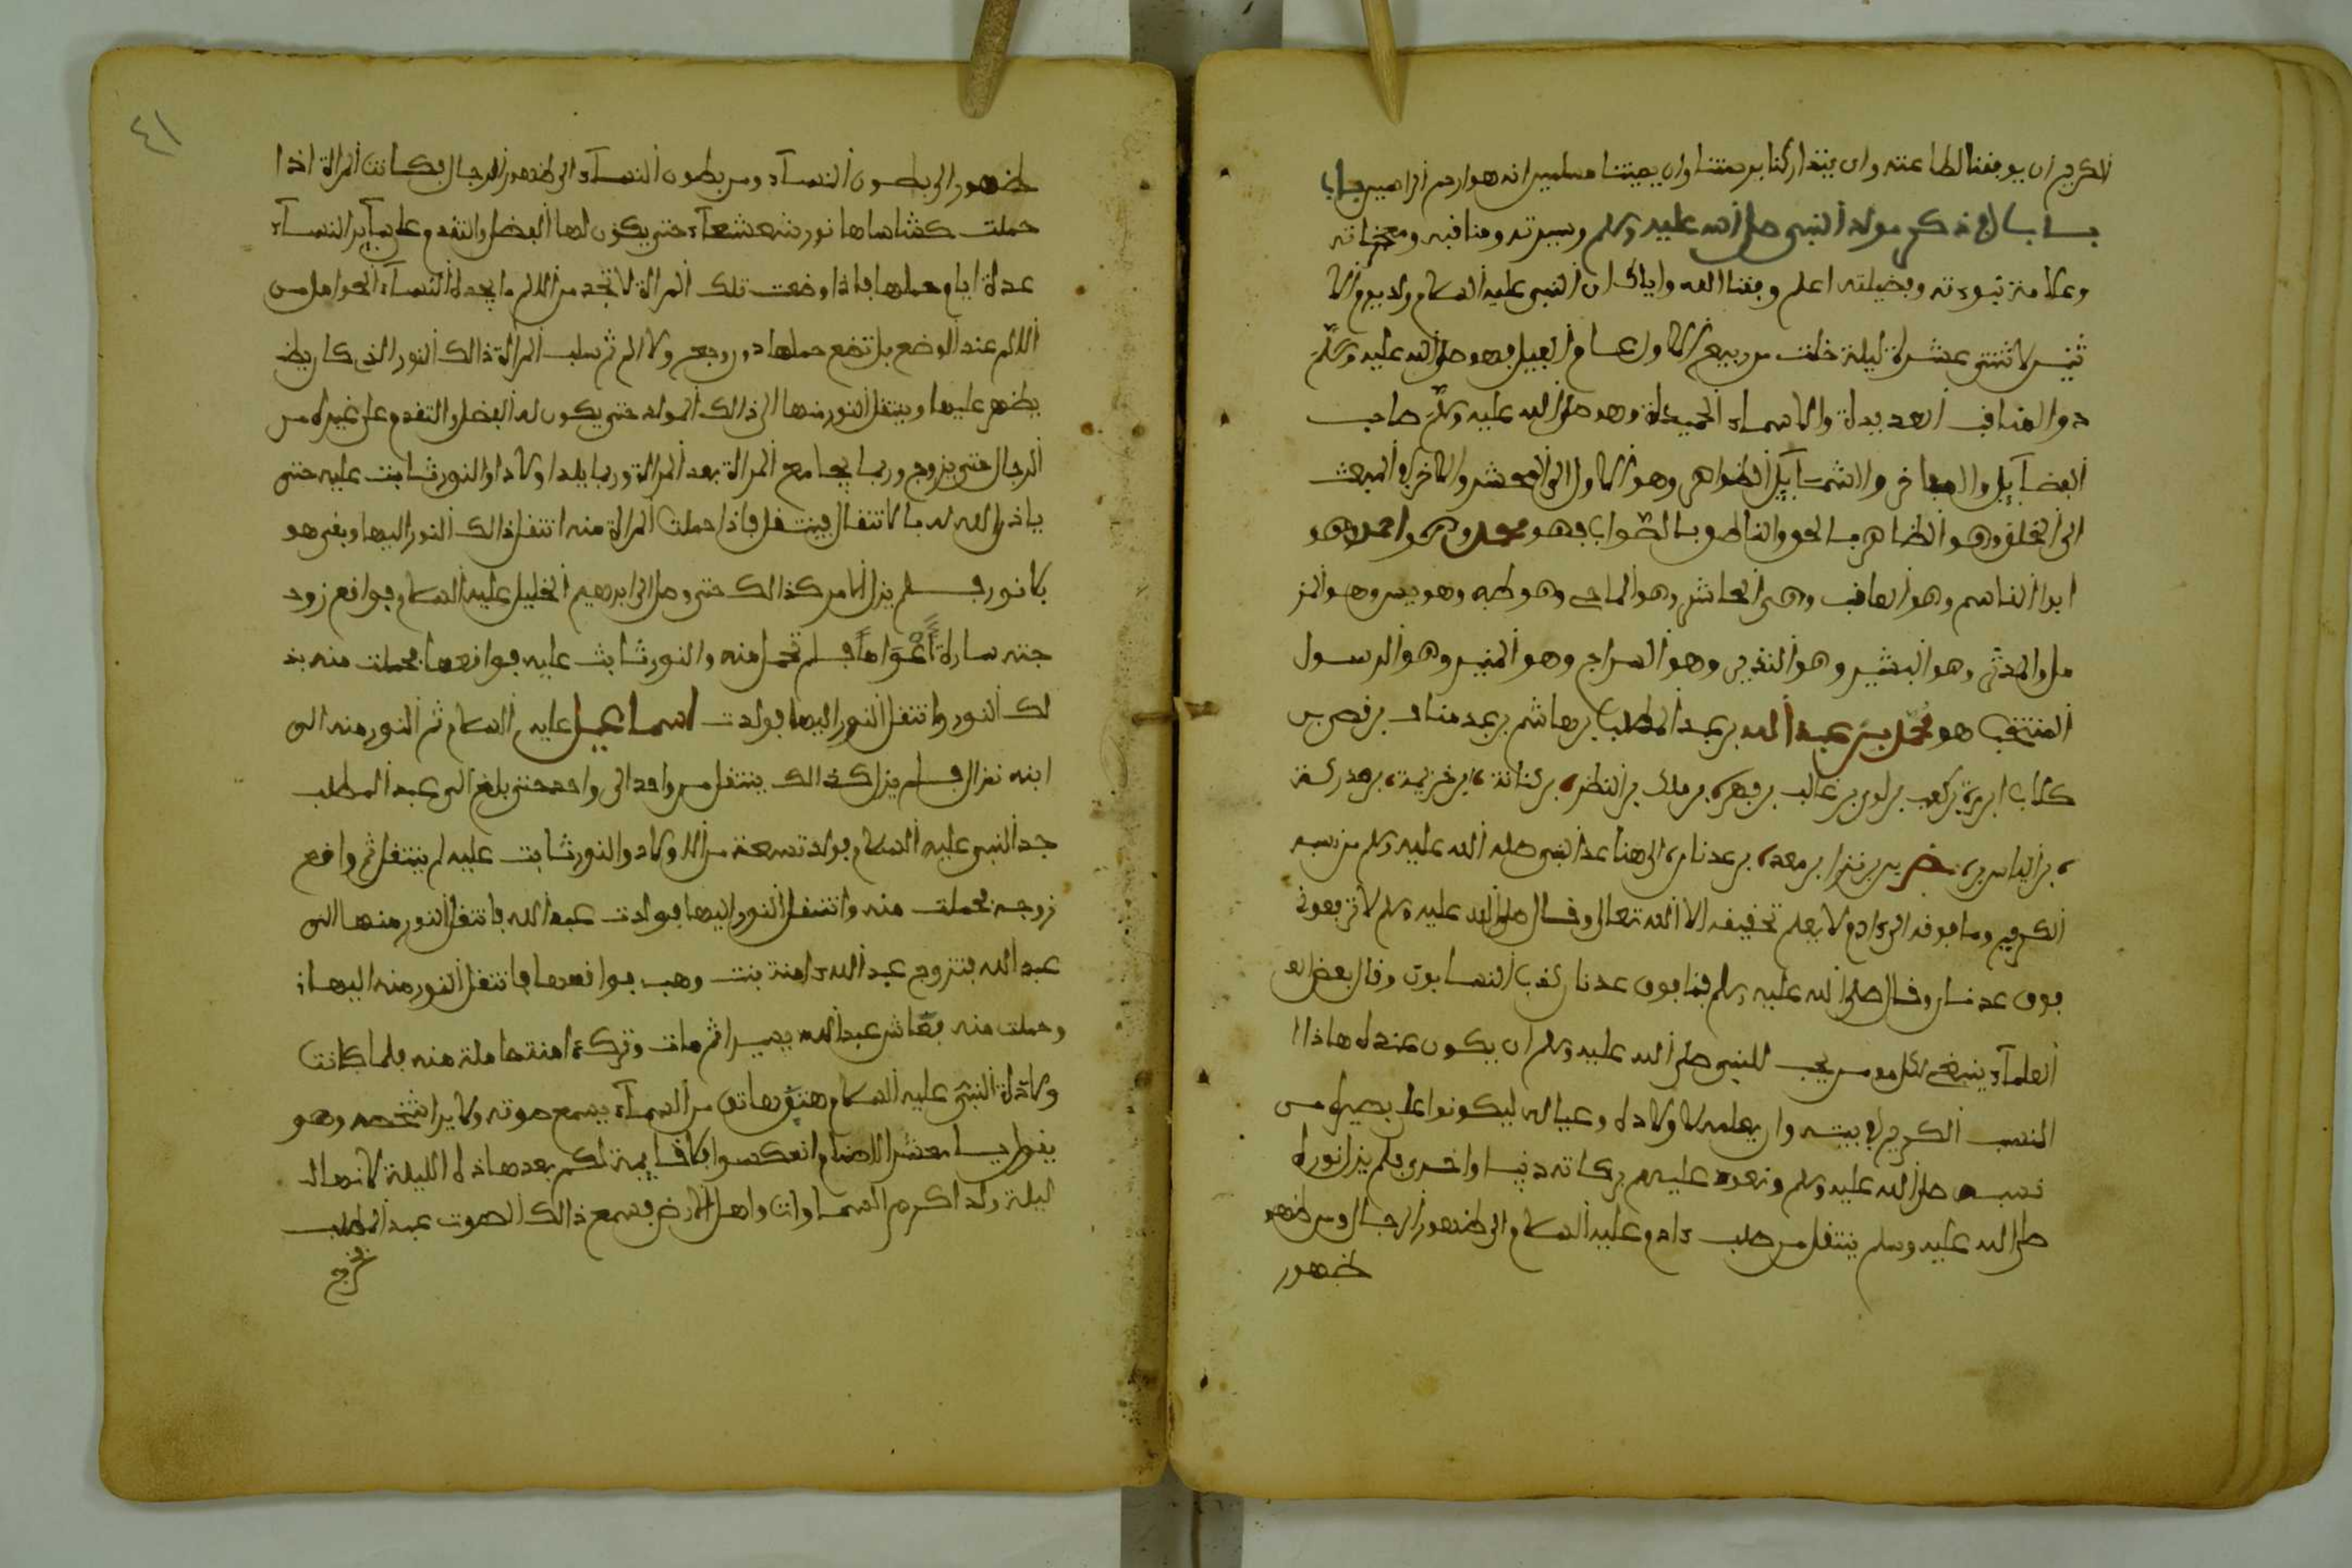 الكريم ان يوفقنا لطاعته وان يتداركنا برحمته وان يميتنا مسلمين انه هو ارحم الراحمين
باب في ذكر مولد النبي صلى الله عليه وسلم وسيرته ومناقبه ومعجزاته
وعلامة نبوءته وفضيلته اعلم وفقنا الله واياك ان النبي عليه السلام ولد يوم الا
ثنين لاثنتي عشرة ليلة خلت من ربيع الاول عام الفيل فهو صلى الله عليه وسلم
ذوا المناقب العديدة والاسماء الحميدة وهو صلى الله عليه وسلم صاحب
الفضآيل والمفاخر والشمآيل الظواهر وهو الاول الى المحشر والاخر في المبعث
الى الخلق وهو الظاهر بالحق والناطق بالصواب فهو محمد وهو احمد وهو
ابوا القاسم وهو العاقب وهو الحاشر وهو الماحي وهو طه وهو يس وهو المز
مل والمدثر وهو البشير وهو النذير وهو السراج وهو المنير وهو الرسول
المنتخب هو محمد بن عبد الله بن عبد المطلب بن هاشم بن عبد مناف بن قصي بن
كلاب ابن مرة بن كعب بن لوي بن غالب بن فهر بن ملك بن النظر بن كنانة ابن خزيمة بن مدركة
بن الياس بن مضر بن نزار بن معد بن عدنان الى هنا عد النبي صلى الله عليه وسلم من نسبه
الكريم وما فوقه الى ءادم لا يعلم تحقيقه الا الله تعالى وقال صلى الله عليه وسلم لا ترفعوني
فوق عدنان وقال صلى الله عليه وسلم فما فوق عدنان كذب النسابون وقال بعض الع
العلمآء ينبغي لكل مومن يحب للنبي صلى الله عليه وسلم ان يكون عنده هاذا ا
النسب الكريم في بيته وان يعلمه لاولاده وعياله ليكونوا على بصيرة من
نسبه صلى الله عليه وسلم وتعود عليهم بركاته دنيا واخرى فلم يزل نوره
صلى الله عليه وسلم ينتقل من صلب ءادم عليه السلام والى ظهور الرجال ومن ظهو
ظهور
٤١
ظهور الى بطون النسآء ومن بطون النسآء الى ظهور الرجال فكانت المراة اذا
حملت كساها نور شعشعآء حتى يكون لها الفضل والتقدم على سآير النسآء
عدة ايام حملها فاذا وضعت تلك المراة لا تجد من الالم ما يجدة النسآء الحوامل من
الالم عند الوضع بل تضع حملها دون وجع ولا الم ثم سلب المراة ذالك النور الذي كان يظ
يظهر عليها وينتقل النور منها الى ذالك المولد حتى يكون له الفضل والتقدم على غيره من
الرجال حتى يزوج وربما يجامع المراة بعد المراة وربما يلد اولادا والنور ثابت عليه حتى
ياذن الله له بالانتقال فينتقل فاذا حملت المراة منه انتقل ذالك النور اليها وبقى هو
بلا نور فلم يزل الامر كذالك حتى وصل الى ابرهيم الخليل عليه السلام فواقع زود
جته سارة اعواما فلم تحمل منه والنور ثابت عليه فواقعها فحملت منه بذ
لك النور وانتقل النور اليها فولدت اسماعيل عليه السلام ثم النور منه الى
ابنه نزال فلم يزل كذالك ينتقل من واحد الى واحد حتى بلغ الى عبد المطلب
جد النبي عليه السلام فولد تسعة من الاولاد والنور ثابت عليه لم ينتقل ثم واقع
زوجه فحملت منه وانتقل النور اليها فولدت عبد الله فانتقل النور منها الى
عبد الله فتزوج عبد الله ءامنة بنت وهب فواقعها فانتقل النور منه اليها
وحملت منه فعاش عبد الله يسيرا ثم مات وترك ءامنة حاملة منه فلما كانت
ولادة النبي عليه السلام هتف هاتف من السمآء يسمع صوته ولا يرا شخصه وهو
يقول يا معشر الاصنام انعكسوا فلا قايمة لكم بعد هاذه الليلة لانها
ليلة ولد اكرم السماوات واهل الارض فسمع ذالك الصوت عبد المطلب
فخرج